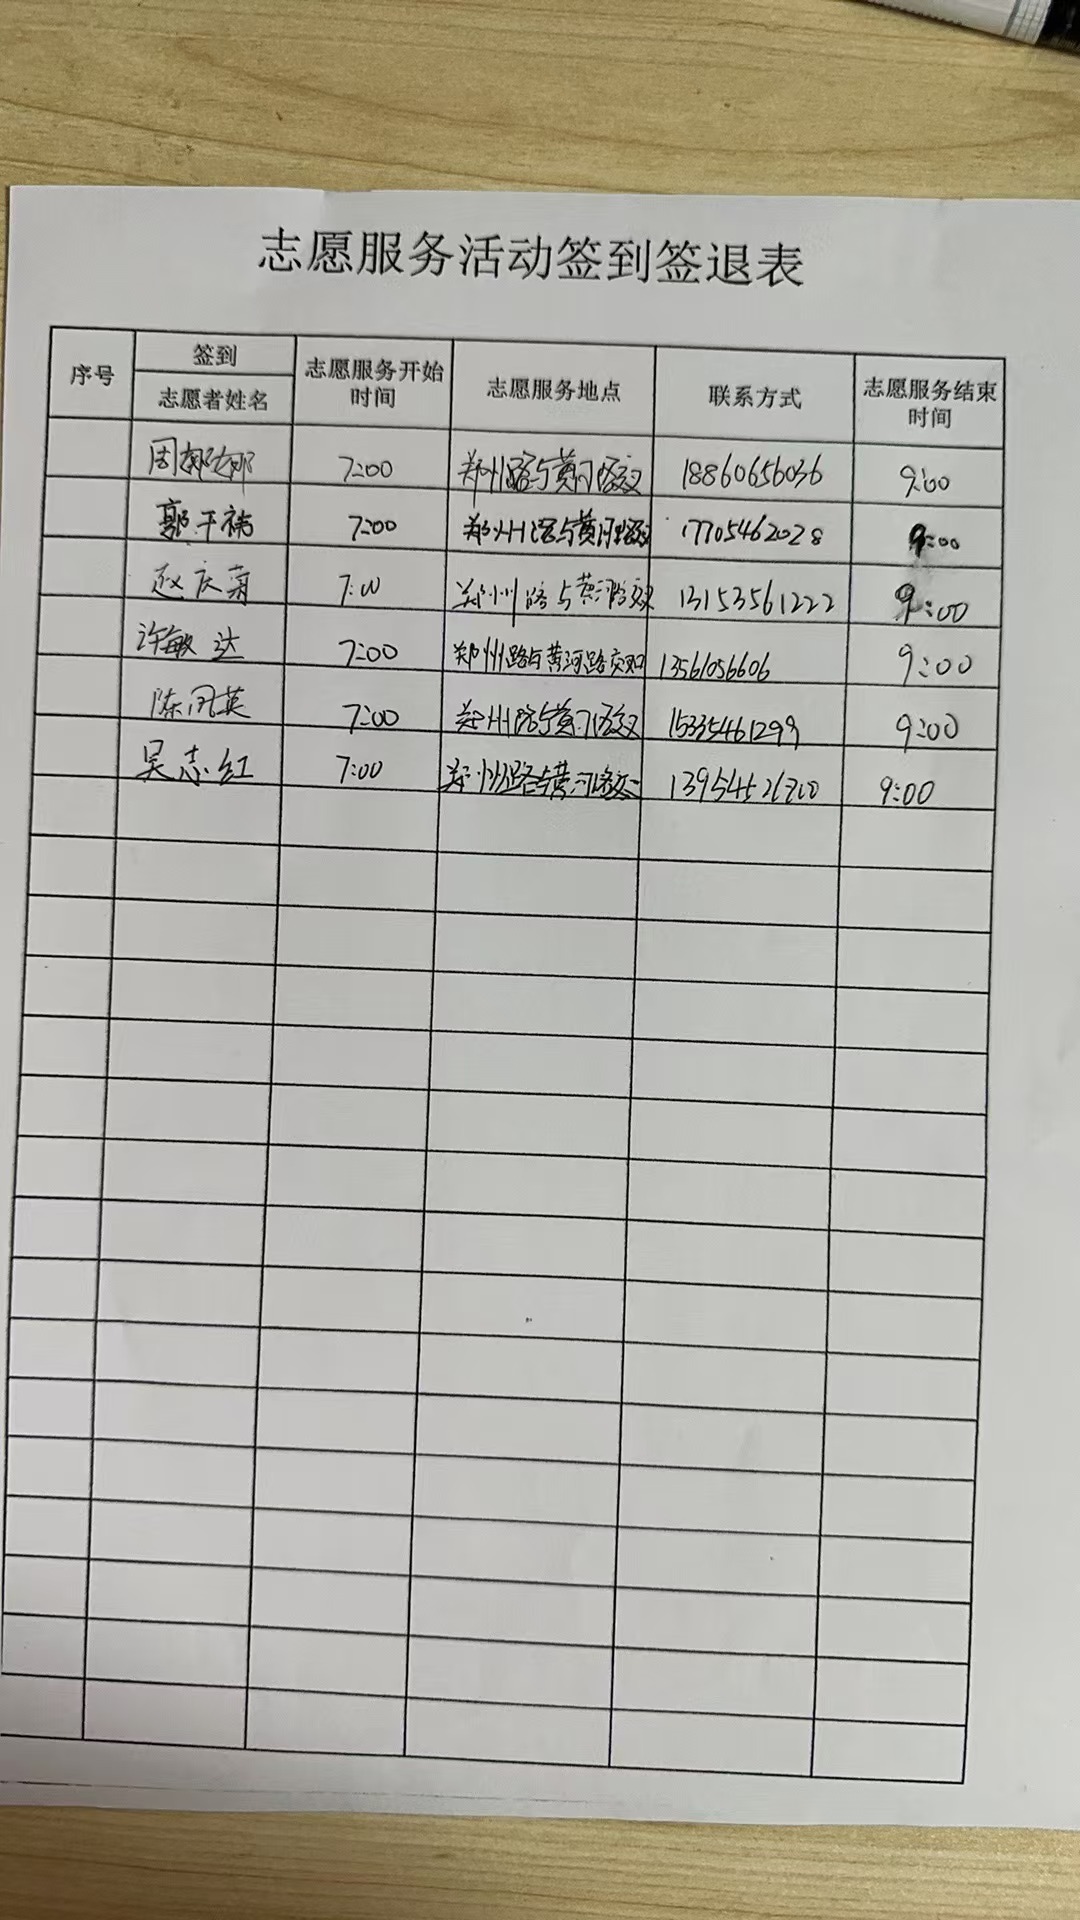 志愿服务活动签到签退表
序号 签到 志愿者姓名 志愿服务开始时间 志愿服务地点 联系方式 志愿服务结束时间
周娜娜 7:00 郑州路与黄河路交 18860656036 9:00
郭 7:00 郑州路与黄河路交 17705462028 9:00
赵庆 7:00 郑州路与黄河路交 13153561222 9:00
许敏达 7:00 郑州路与黄河路交 13561056606 9:00
陈凤英 7:00 郑州路与黄河路交 15335461299 9:00
吴志红 7:00 郑州路与黄河路交 9:00